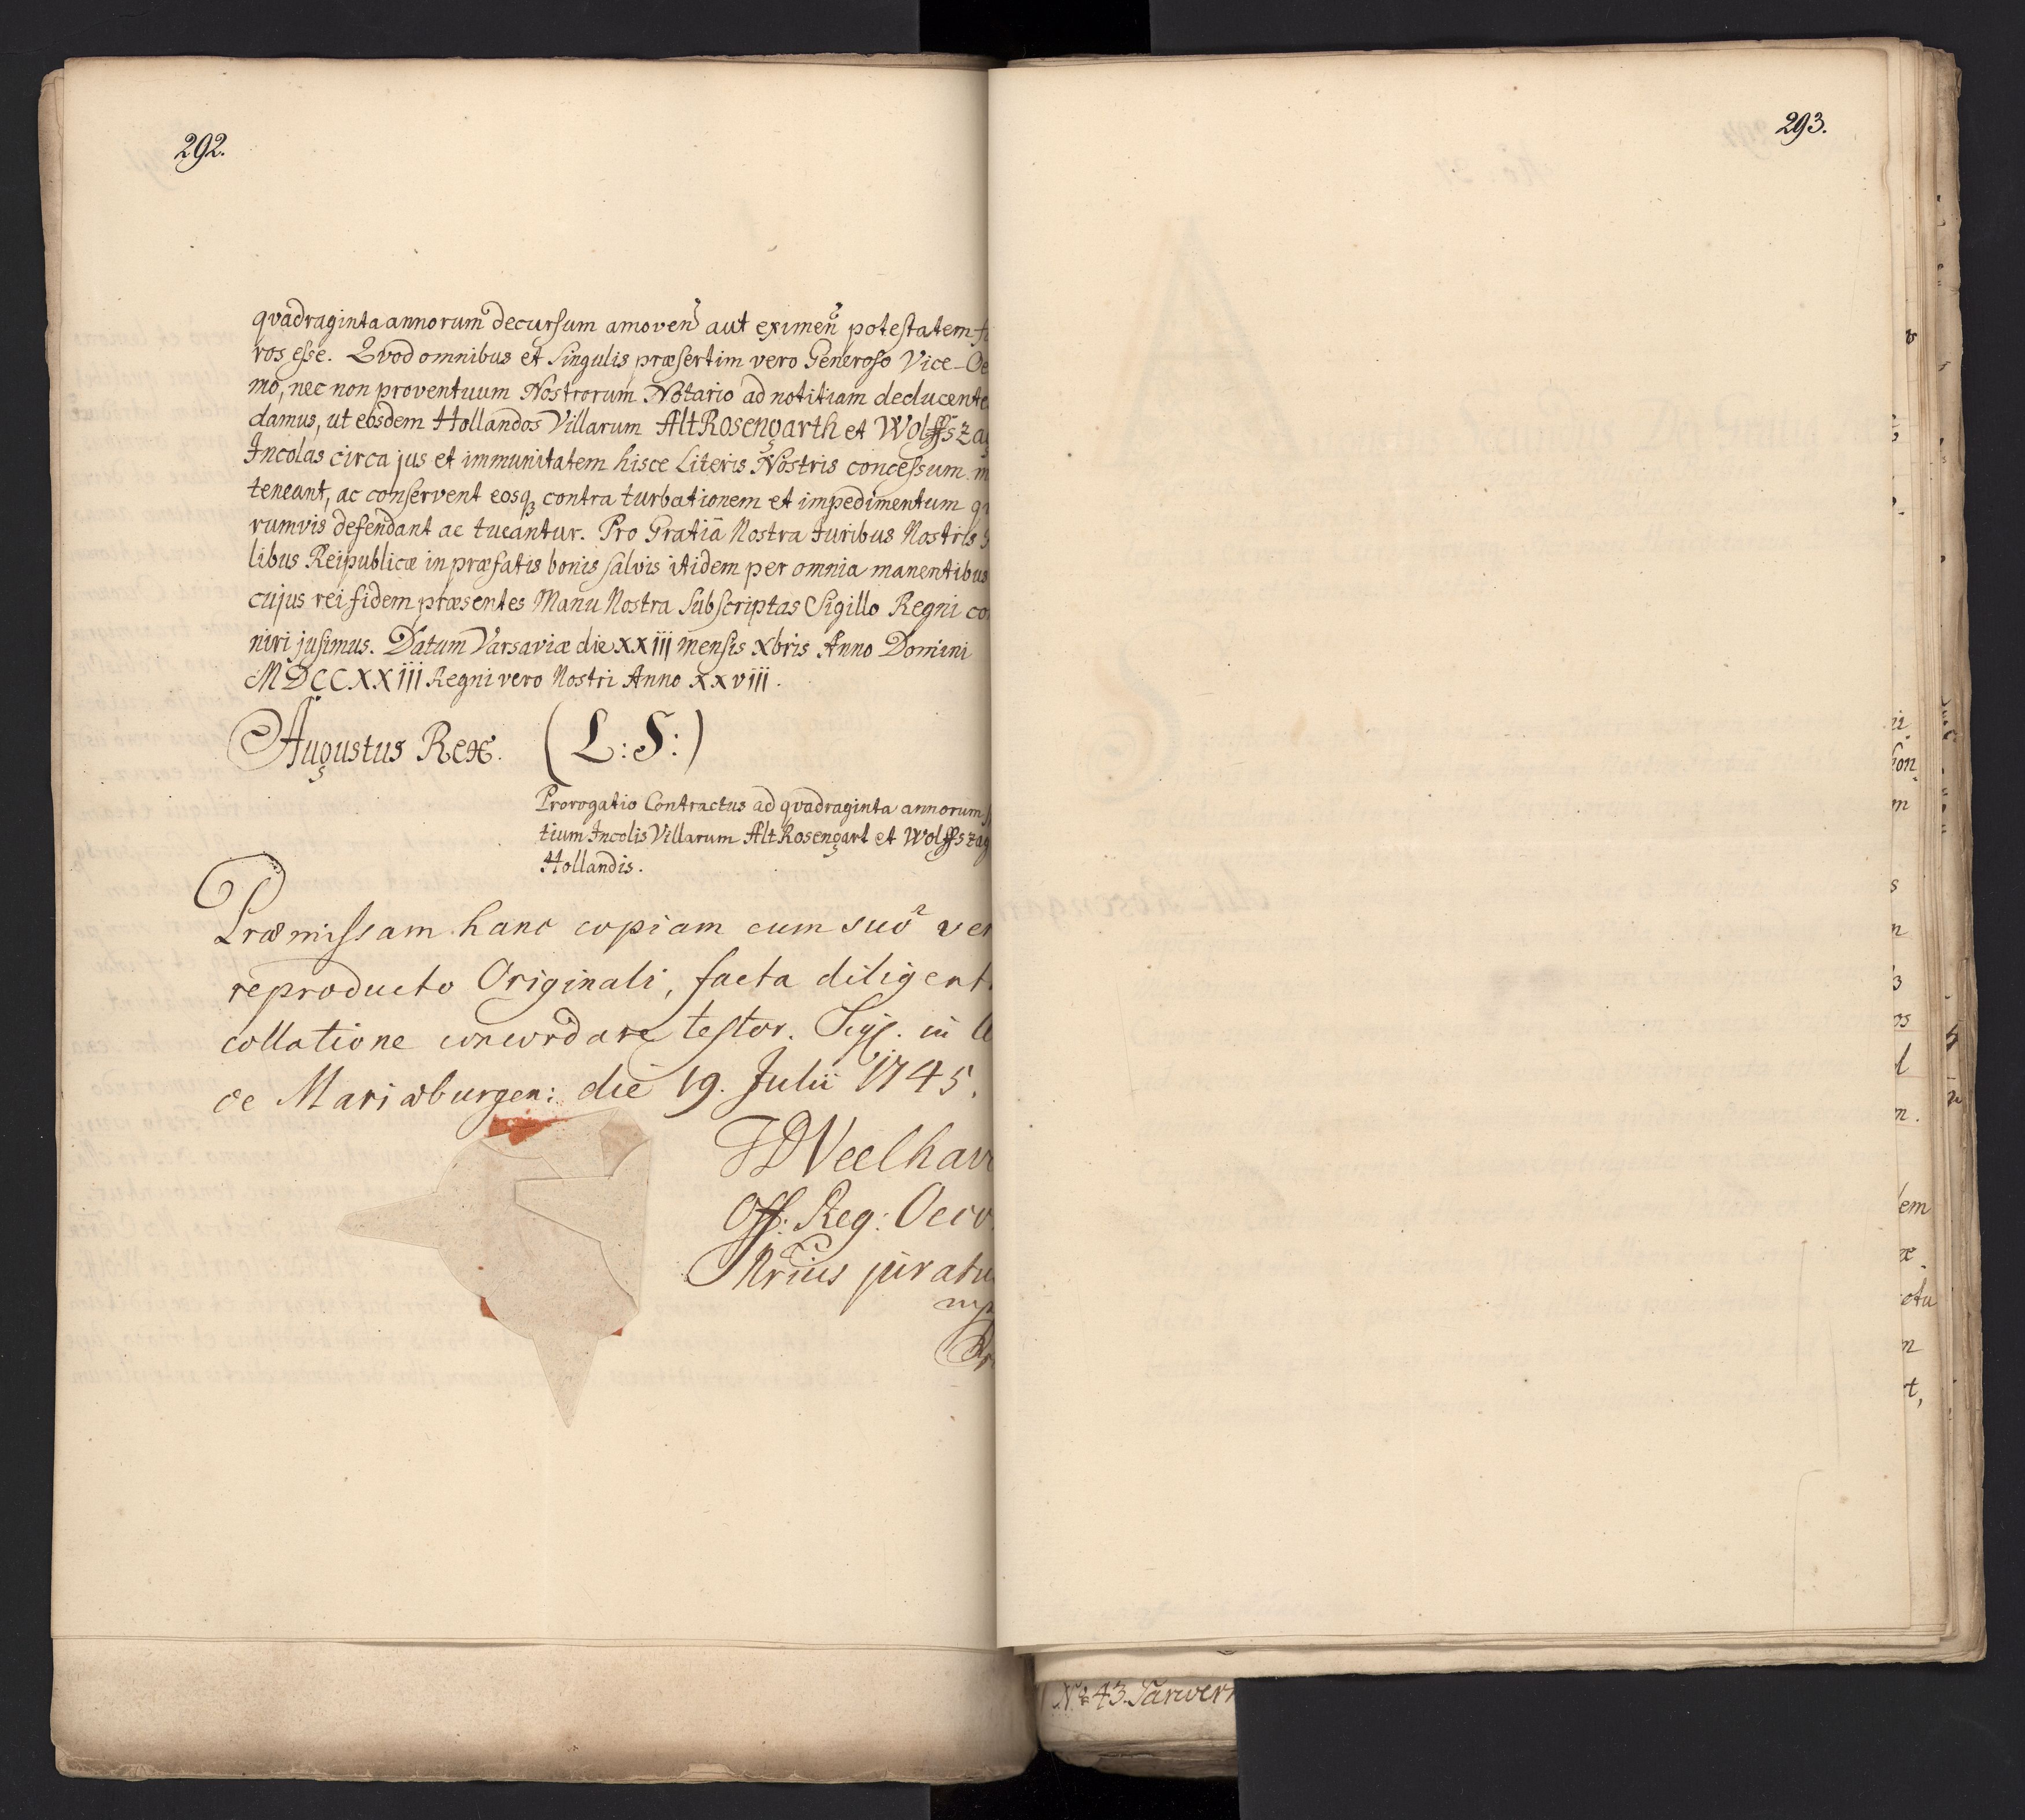 292.
qvadraginta annorum decursum amoven aut eximen potestatem
ros esse. Qvod omnibus et singulis præsertim vero Generoso Vice-Oe
mo, nec non proventuum Nostrorum Notario ad notitiam deducente
damus, ut eosdem Hollandos Villarum Alt Rosengarth et Wolffsza
Incolas circa jus et immunitatem hisce Literis Nostris concessum m
teneant, ac conservent eosq contra turbationem et impedimentum q
rumvis defendant ac tueantur. Pro Gratiâ Nostra Juribus Nostris
libus Reipublicæ in præfatis bonis salvis itidem per omnia manentibus
cujus rei fidem præsentes Manu Nostra Subscriptas Sigillo Regni co
niri jusimus. Datum Varsaviæ die XXIII mensis Xbris Anno Domini
MDCCXXIII Regni vero Nostri Anno XXVIII.
Augustus Rex. (L:S:)
Prorogatio Contractus ad qvadraginta annorum
tium Incolis Villarum Alt Rosengart et Wolffszag
Hollandis.
Præmissam hanc copiam cum suo ver
reproducto Originali, facta diligent
collatione concordare testor. in
ce Mariæburgen: die 19. Julii 1745.
Off: Reg: Oeco
Nrius juratu
mp
293.
Nº 43.